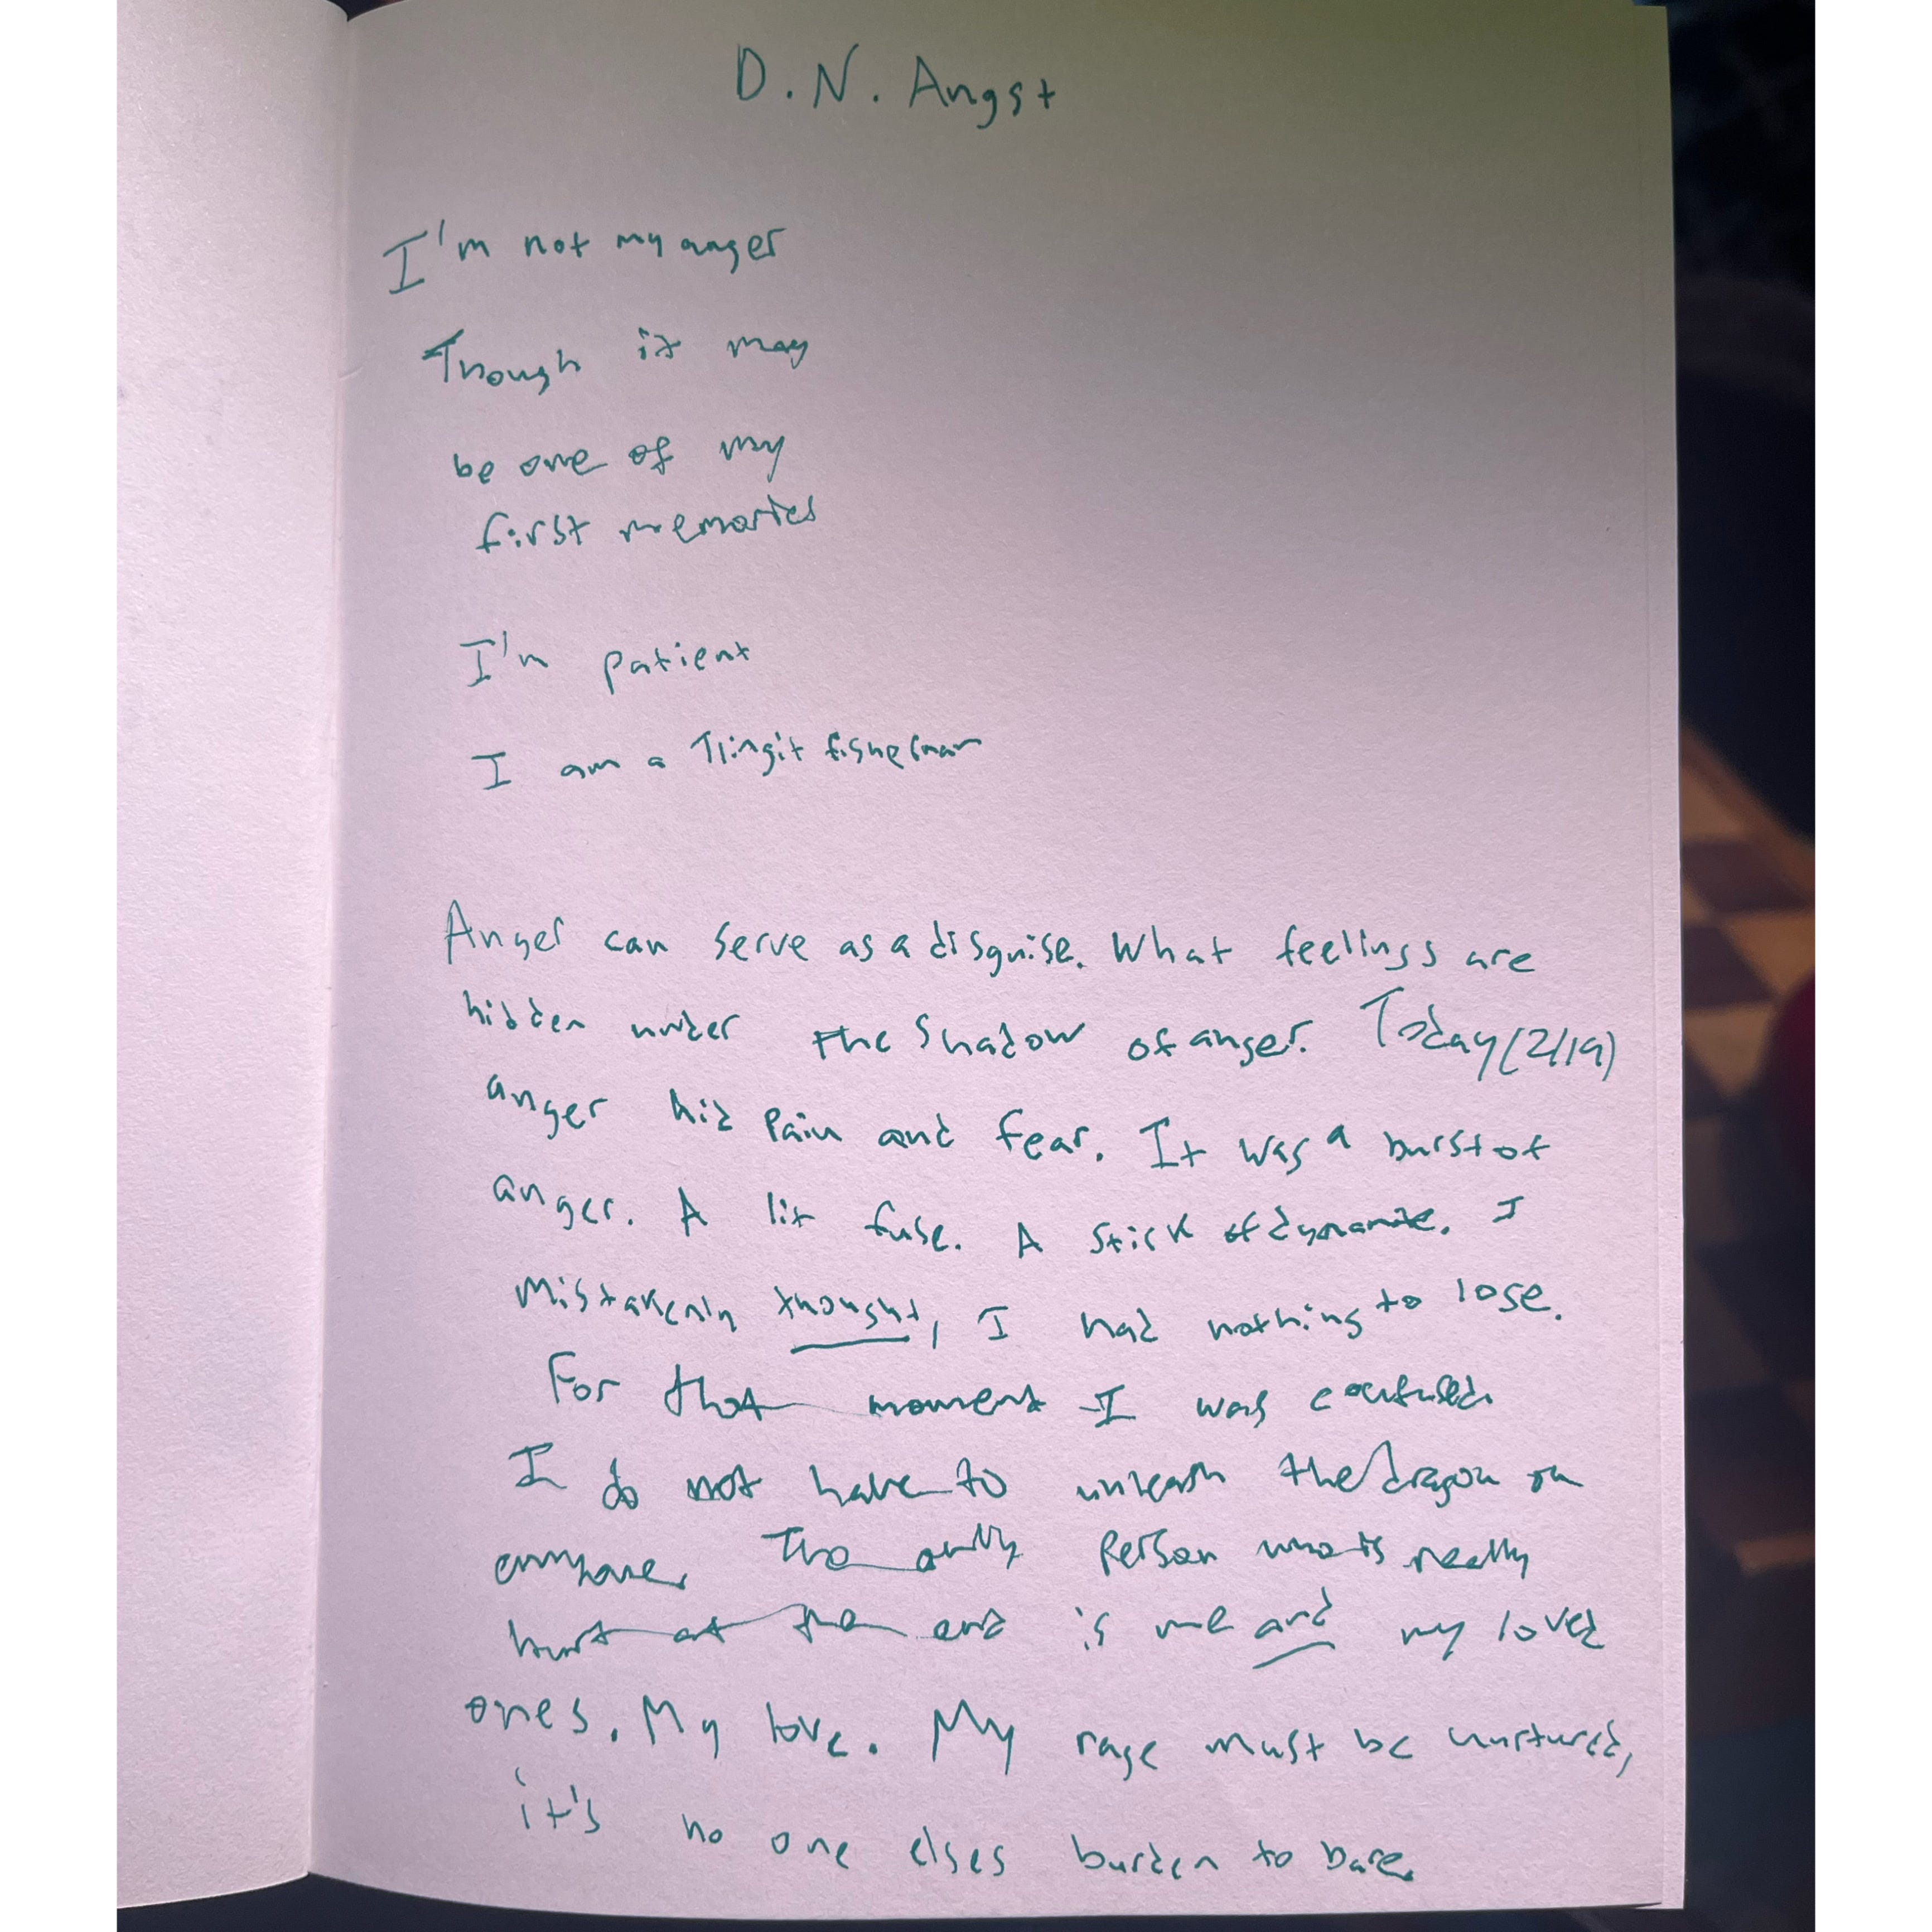 D.N. Angst
I'm not my anger
Though it may
be one of my
first memories
I'm patient
I am a Tlingit fisherman
Anger can serve as a disguise. What feelings are
hidden under the shadow of anger. Today (2/19)
anger hid pain and fear. It was a burst of
anger. A lit fuse. A stick of dynamite. I
mistakenly thought, I had nothing to lose.
For that moment I was confused.
I do not have to unleash the dragon on
anyone. The only person who is really
hurt at the end is me and my loved
ones. My love. My rage must be nurtured,
it's no one elses burden to bare.